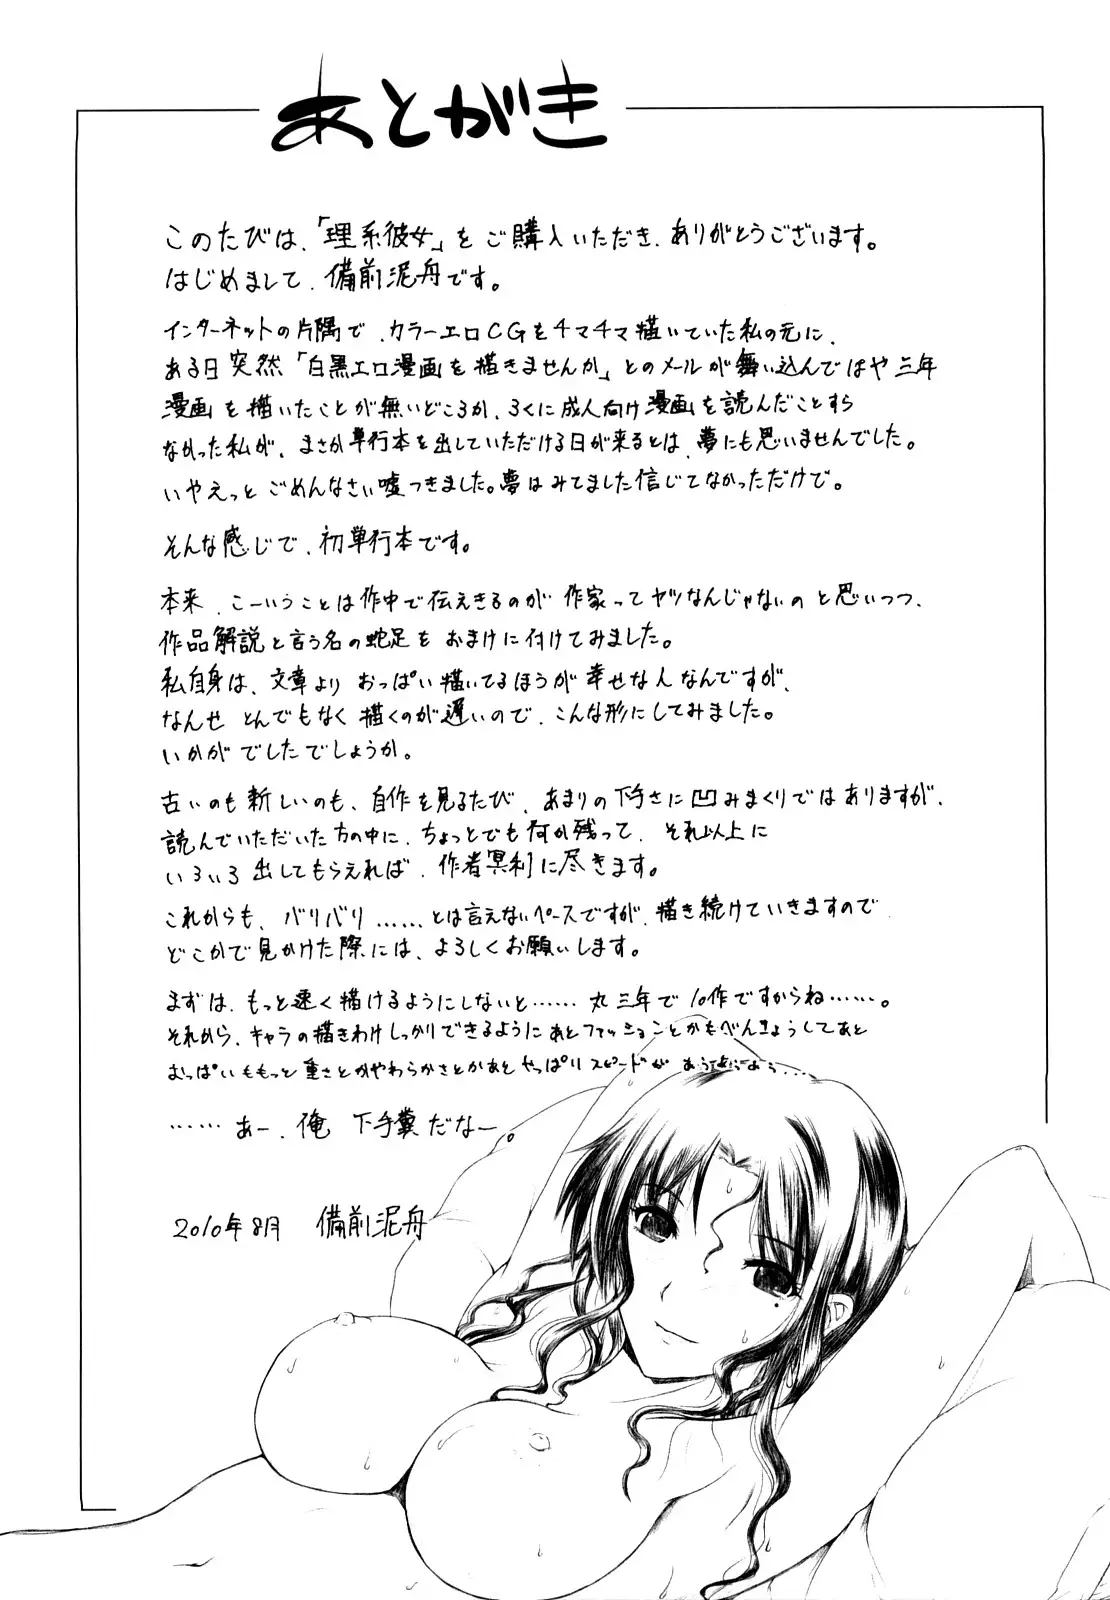 あとがき
このたびは、「理系彼女」をご購入いただき、ありがとうございます。
はじめまして、備前泥舟です。
インターネットの片隅で、カラーエロCGをチマチマ描いていた私の元に、
ある日突然「白黒エロ漫画を描きませんか」とのメールが舞い込んではや三年
漫画を描いたことが無いどころか、ろくに成人向け漫画を読んだことすら
なかった私が、まさか単行本を出していただける日が来るとは、夢にも思いませんでした。
いやえっと ごめんなさい嘘つきました。夢はみてました信じてなかっただけで。
そんな感じで、初単行本です。
本来、こーいうことは作中で伝えきるのが 作家ってヤツなんじゃないの と思いつつ、
作品解説と言う名の蛇足を おまけに付けてみました。
私自身は、文章より おっぱい描いてるほうが 幸せな人なんですが、
なんせ とんでもなく 描くのが遅いので、こんな形にしてみました。
いかが でしたでしょうか。
古いのも新しいのも、自作を見るたび、あまりの下手さに凹みまくりではありますが、
読んでいただいた方の中に、ちょっとでも何か残って、それ以上に
いろいろ出してもらえれば、作者冥利に尽きます。
これからも、バリバリ……とは言えないペースですが、描き続けていきますので、
どこかで見かけた際には、よろしくお願いします。
まずは、もっと速く描けるようにしないと……丸三年で10作ですからね……。
それから、キャラの描きわけしっかりできるように あとファッションとかもべんきょうしてあと
おっぱいももっと重さとかやわらかさとかあと やっぱりスピードが あうあうあう...
……あー、俺 下手糞だなー。
2010年8月 備前泥舟